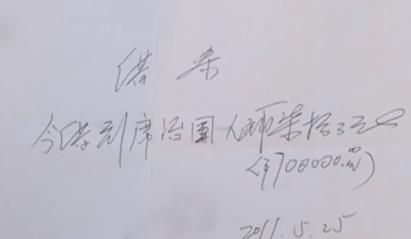 借条
今借到席治国人币柒拾万元
(¥700000.00)
2011.5.25